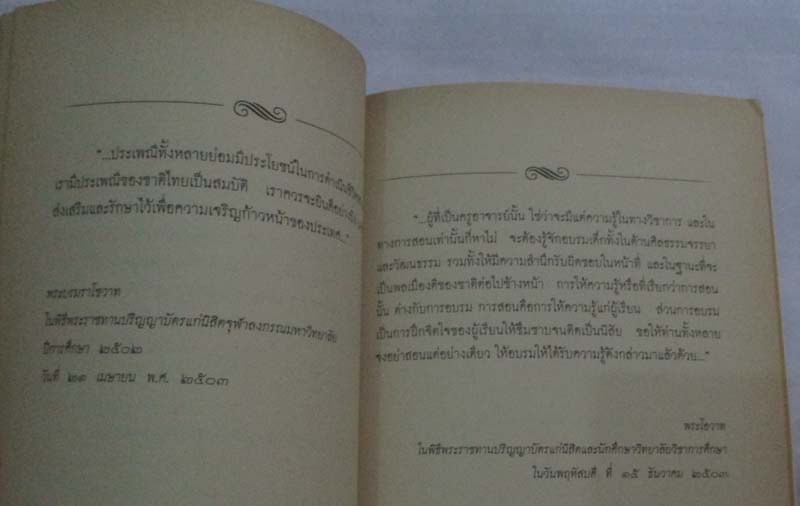 "...ประเพณีทั้งหลายย่อมมีประโยชน์ในการดำเนินชีวิต
เรามีประเพณีของชาติไทยเป็นสมบัติ เราควรจะยินดีอย่างยิ่ง
ส่งเสริมและรักษาไว้เพื่อความเจริญก้าวหน้าของประเทศ..."
พระบรมราโชวาท
ในพิธีพระราชทานปริญญาบัตรแก่นิสิตจุฬาลงกรณมหาวิทยาลัย
ปีการศึกษา ๒๕๐๒
วันที่ ๒๑ เมษายน พ.ศ. ๒๕๐๓
"...ผู้ที่เป็นครูอาจารย์นั้น ใช่ว่าจะมีแต่ความรู้ในทางวิชาการ และใน
ทางการสอนเท่านั้นก็หาไม่ จะต้องรู้จักอบรมเด็กทั้งในด้านศีลธรรมจรรยา
และวัฒนธรรม รวมทั้งให้มีความสำนึกรับผิดชอบในหน้าที่ และในฐานะที่จะ
เป็นพลเมืองดีของชาติต่อไปข้างหน้า การให้ความรู้หรือที่เรียกว่าการสอน
นั้น ต่างกับการอบรม การสอนคือการให้ความรู้แก่ผู้เรียน ส่วนการอบรม
เป็นการฝึกจิตใจของผู้เรียนให้ซึมซาบจนติดเป็นนิสัย ขอให้ท่านทั้งหลาย
จงอย่าสอนแต่อย่างเดียว ให้อบรมให้ได้รับความรู้ดังกล่าวมาแล้วด้วย..."
พระโอวาท
ในพิธีพระราชทานปริญญาบัตรแก่นิสิตและนักศึกษาวิทยาลัยวิชาการศึกษา
ในวันพฤหัสบดี ที่ ๑๕ ธันวาคม ๒๕๐๓